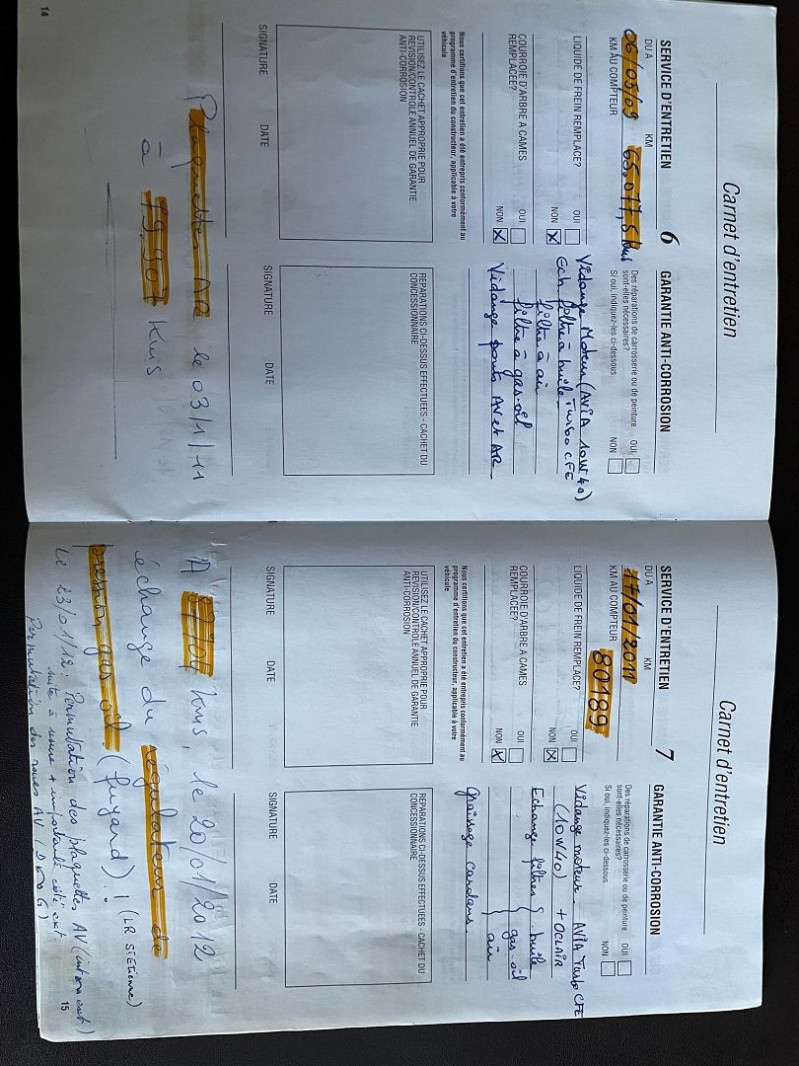 Carnet d'entretien
SERVICE D'ENTRETIEN 6
DU A KM
06/05/09 65.077,5 kms
KM AU COMPTEUR
LIQUIDE DE FREIN REMPLACE?
OUI
NON X
COURROIE D'ARBRE A CAMES
REMPLACEE?
OUI
NON X
Nous certifions que cet entretien a été entrepris conformément au
programme d'entretien du constructeur, applicable à votre
véhicule
UTILISEZ LE CACHET APPROPRIE POUR
REVISION/CONTROLE ANNUEL DE GARANTIE
ANTI-CORROSION
SIGNATURE DATE
GARANTIE ANTI-CORROSION
Des réparations de carrosserie ou de peinture
sont-elles nécessaires?
OUI
NON
Si oui, indiquez-les ci-dessous
Vidange Moteur (AVIA 10W40)
Turbo CFE
Ech filtre à huile
filtre à air
filtre à gas-oil
Vidange ponts AV et AR
REPARATIONS CI-DESSUS EFFECTUEES - CACHET DU
CONCESSIONNAIRE
SIGNATURE DATE
Plaquettes AR le 03/1/11
à 79.901 Kms
14
Carnet d'entretien
SERVICE D'ENTRETIEN 7
DU A KM
17/01/2011
KM AU COMPTEUR 80189
LIQUIDE DE FREIN REMPLACE?
OUI
NON X
COURROIE D'ARBRE A CAMES
REMPLACEE?
OUI
NON X
Nous certifions que cet entretien a été entrepris conformément au
programme d'entretien du constructeur, applicable à votre
véhicule
UTILISEZ LE CACHET APPROPRIE POUR
REVISION/CONTROLE ANNUEL DE GARANTIE
ANTI-CORROSION
SIGNATURE DATE
GARANTIE ANTI-CORROSION
Des réparations de carrosserie ou de peinture
sont-elles nécessaires?
OUI
NON
Si oui, indiquez-les ci-dessous
Vidange moteur - AVIA Turbo CFE
(10W40) + OCLAIR
Echange filtres huile
gas-oil
air
Graissage cardans.
REPARATIONS CI-DESSUS EFFECTUEES - CACHET DU
CONCESSIONNAIRE
SIGNATURE DATE
A Kms, le 20/01/2012
échange du régulateur de
pression gas oil. (fuyard). ! (LR St Etienne)
Le 23/01/12. Permutation des plaquettes AV (int en ext)
suite à usure + importante côté ext.
Permutation des roues AV (D en G)
15